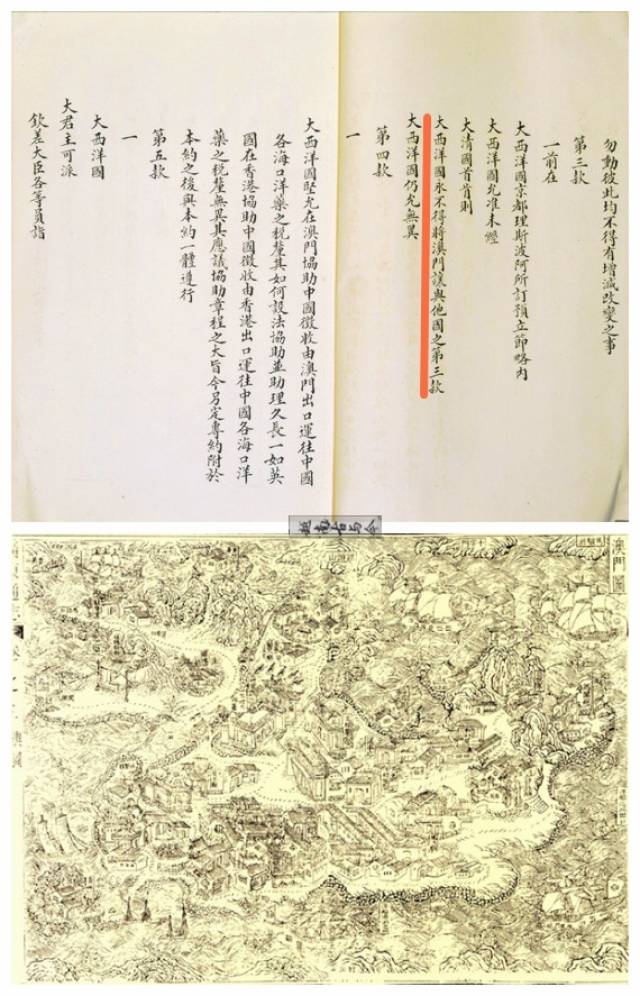 勿動彼此均不得有增減改變之事
第三款
一前在
大西洋國京都理斯波阿所訂預立節略內
大西洋國允准未經
大清國首肯則
大西洋國永不得將澳門讓與他國之第三款
大西洋國仍允無異
第四款
一
大西洋國堅允在澳門協助中國徵收由澳門出口運往中國
各海口洋藥之稅釐其如何設法協助並助理久長一如英
國在香港協助中國徵收由香港出口運往中國各海口洋
藥之稅釐無異其應議協助章程之大旨今另定專約附於
本約之後與本約一體遵行
第五款
一
大西洋國
大君主可派
欽差大臣各等員詣
澳門圖